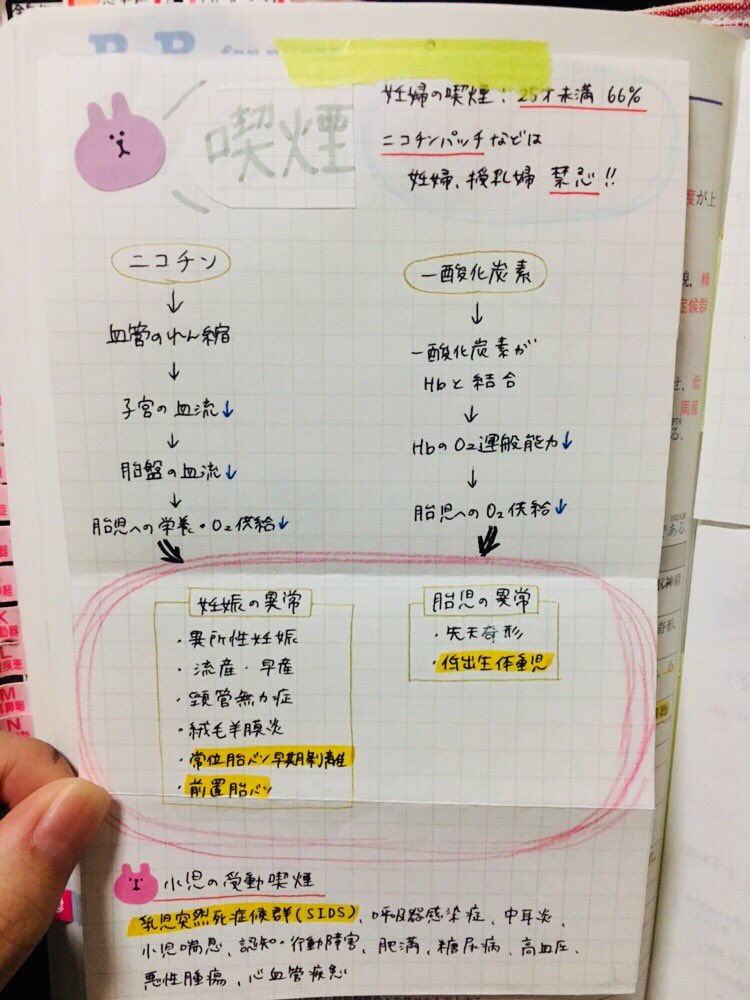 喫煙
妊婦の喫煙：25才未満 66%
ニコチンパッチなどは
妊婦、授乳婦 禁忌!!
ニコチン
↓
血管のれん縮
↓
子宮の血流↓
↓
胎盤の血流↓
↓
胎児への栄養・O₂供給↓
一酸化炭素
↓
一酸化炭素が
Hbと結合
↓
HbのO₂運般能力↓
↓
胎児へのO₂供給↓
妊娠の異常
・異所性妊娠
・流産・早産
・頸管無力症
・絨毛羊膜炎
・常位胎バン早期剥離
・前置胎バン
胎児の異常
・先天奇形
・低出生体重児
小児の受動喫煙
乳児突然死症候群(SIDS)、呼吸器感染症、中耳炎、
小児喘息、認知・行動障害、肥満、糖尿病、高血圧、
悪性腫瘍、心血管疾患
度が上
精
症候群
低
周産
る.
ある.
奇形,